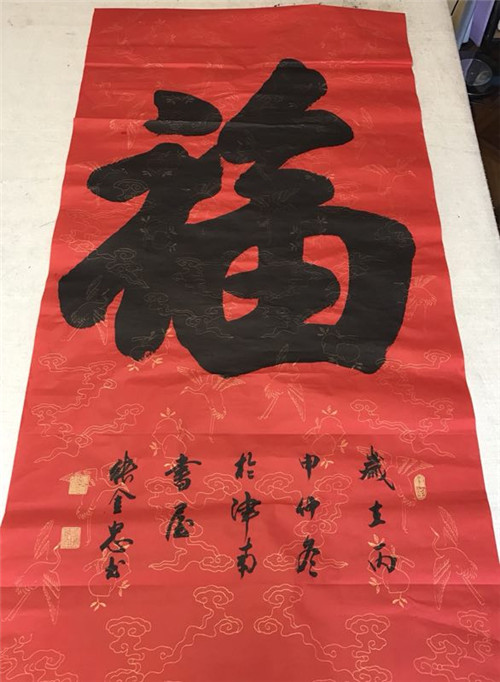 福
歲在丙
申仲冬
於津南
書屋
張金忠書